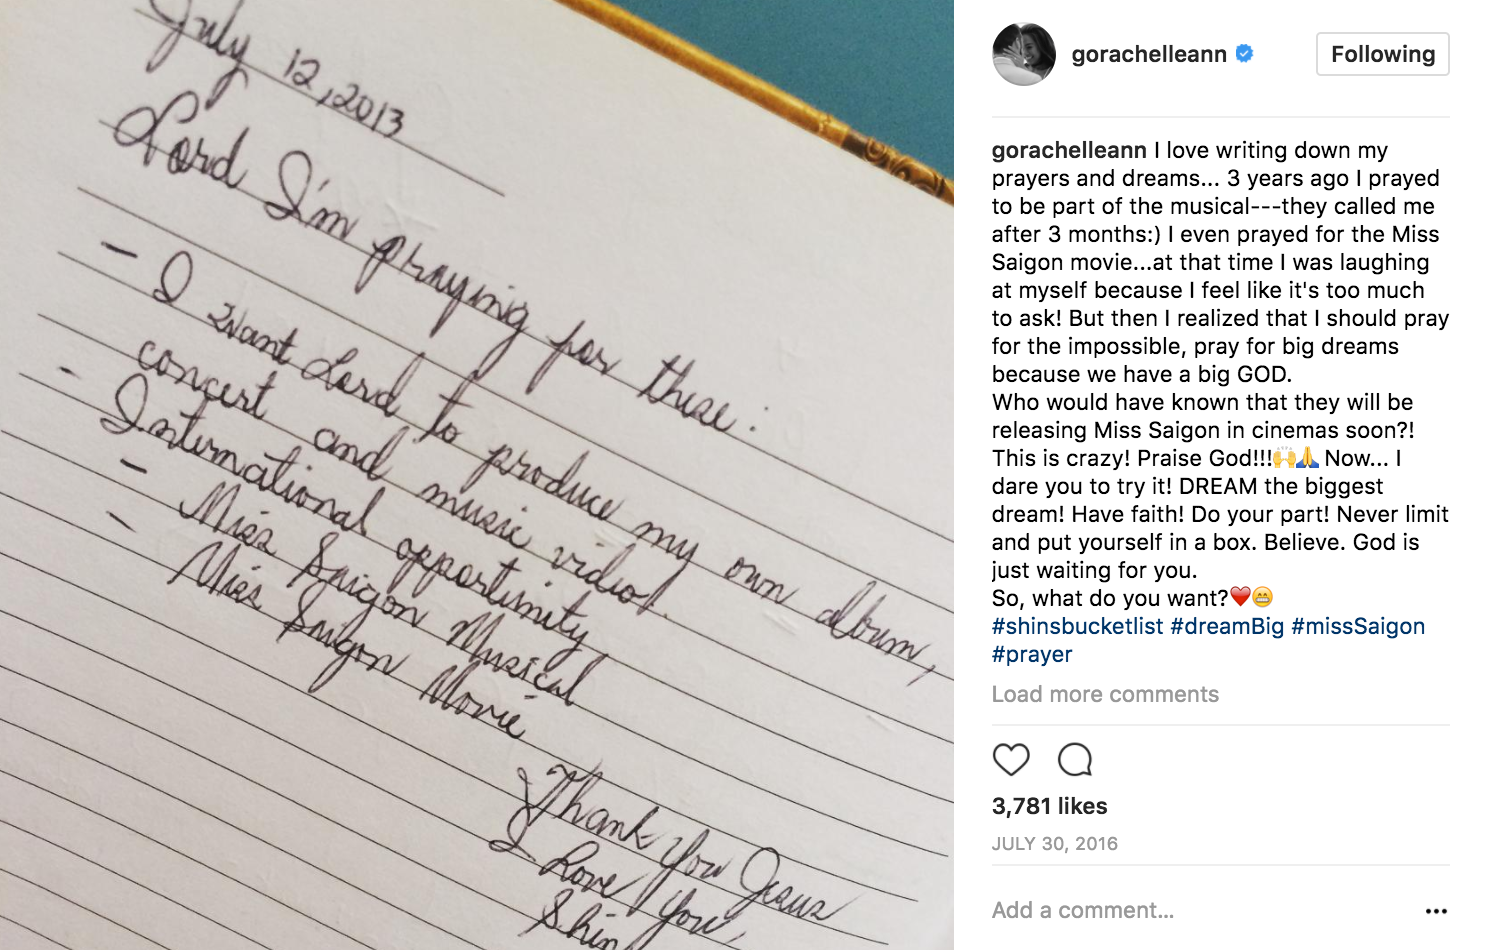 July 12, 2013
Lord I'm praying for these:
- I want Lord to produce my own album,
concert and music video!
- International opportunity
- Miss Saigon Musical
- Miss Saigon Movie
Thank You Jesus
I Love You,
Shin
gorachelleann
Following
gorachelleann I love writing down my
prayers and dreams... 3 years ago I prayed
to be part of the musical---they called me
after 3 months:) I even prayed for the Miss
Saigon movie...at that time I was laughing
at myself because I feel like it's too much
to ask! But then I realized that I should pray
for the impossible, pray for big dreams
because we have a big GOD.
Who would have known that they will be
releasing Miss Saigon in cinemas soon?!
This is crazy! Praise God!!!🙌🙏 Now... I
dare you to try it! DREAM the biggest
dream! Have faith! Do your part! Never limit
and put yourself in a box. Believe. God is
just waiting for you.
So, what do you want?❤️😁
#shinsbucketlist #dreamBig #missSaigon
#prayer
Load more comments
3,781 likes
JULY 30, 2016
Add a comment...